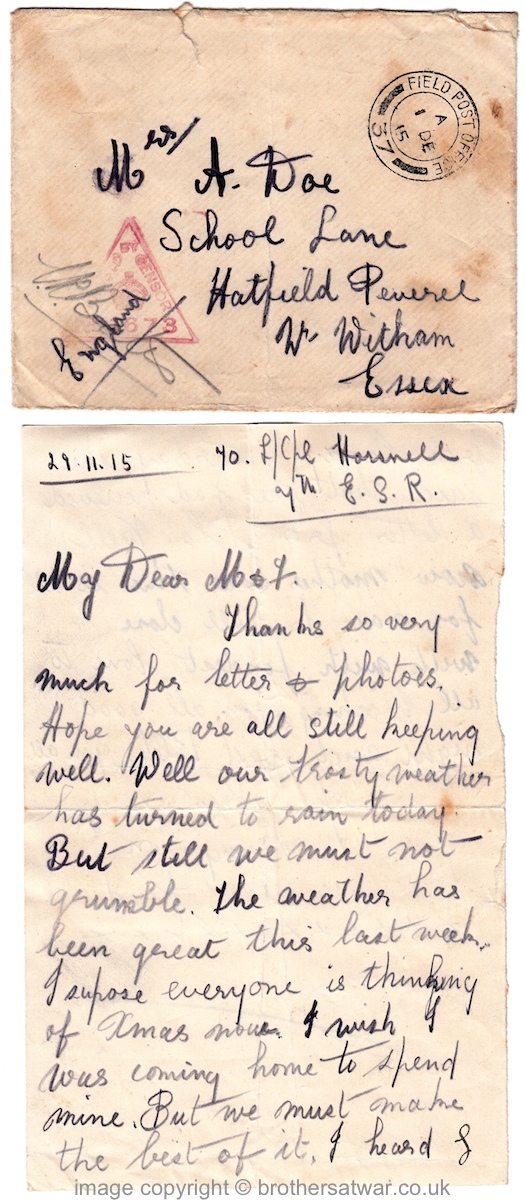 FIELD POST OFFICE
A
1 DE
15
37
Mrs/ A. Doe
School Lane
Hatfield Peverel
Nr Witham
Essex
England
CENSOR
29.11.15
L/Cpl Horsnell
7th E. S. R.
My Dear M & F.
Thanks so very
much for letter & photoes.
Hope you are all still keeping
well. Well our frosty weather
has turned to rain today.
But still we must not
grumble. The weather has
been great this last week.
I supose everyone is thinking
of Xmas now. I wish I
was coming home to spend
mine. But we must make
the best of it. I heard
image copyright © brothersatwar.co.uk